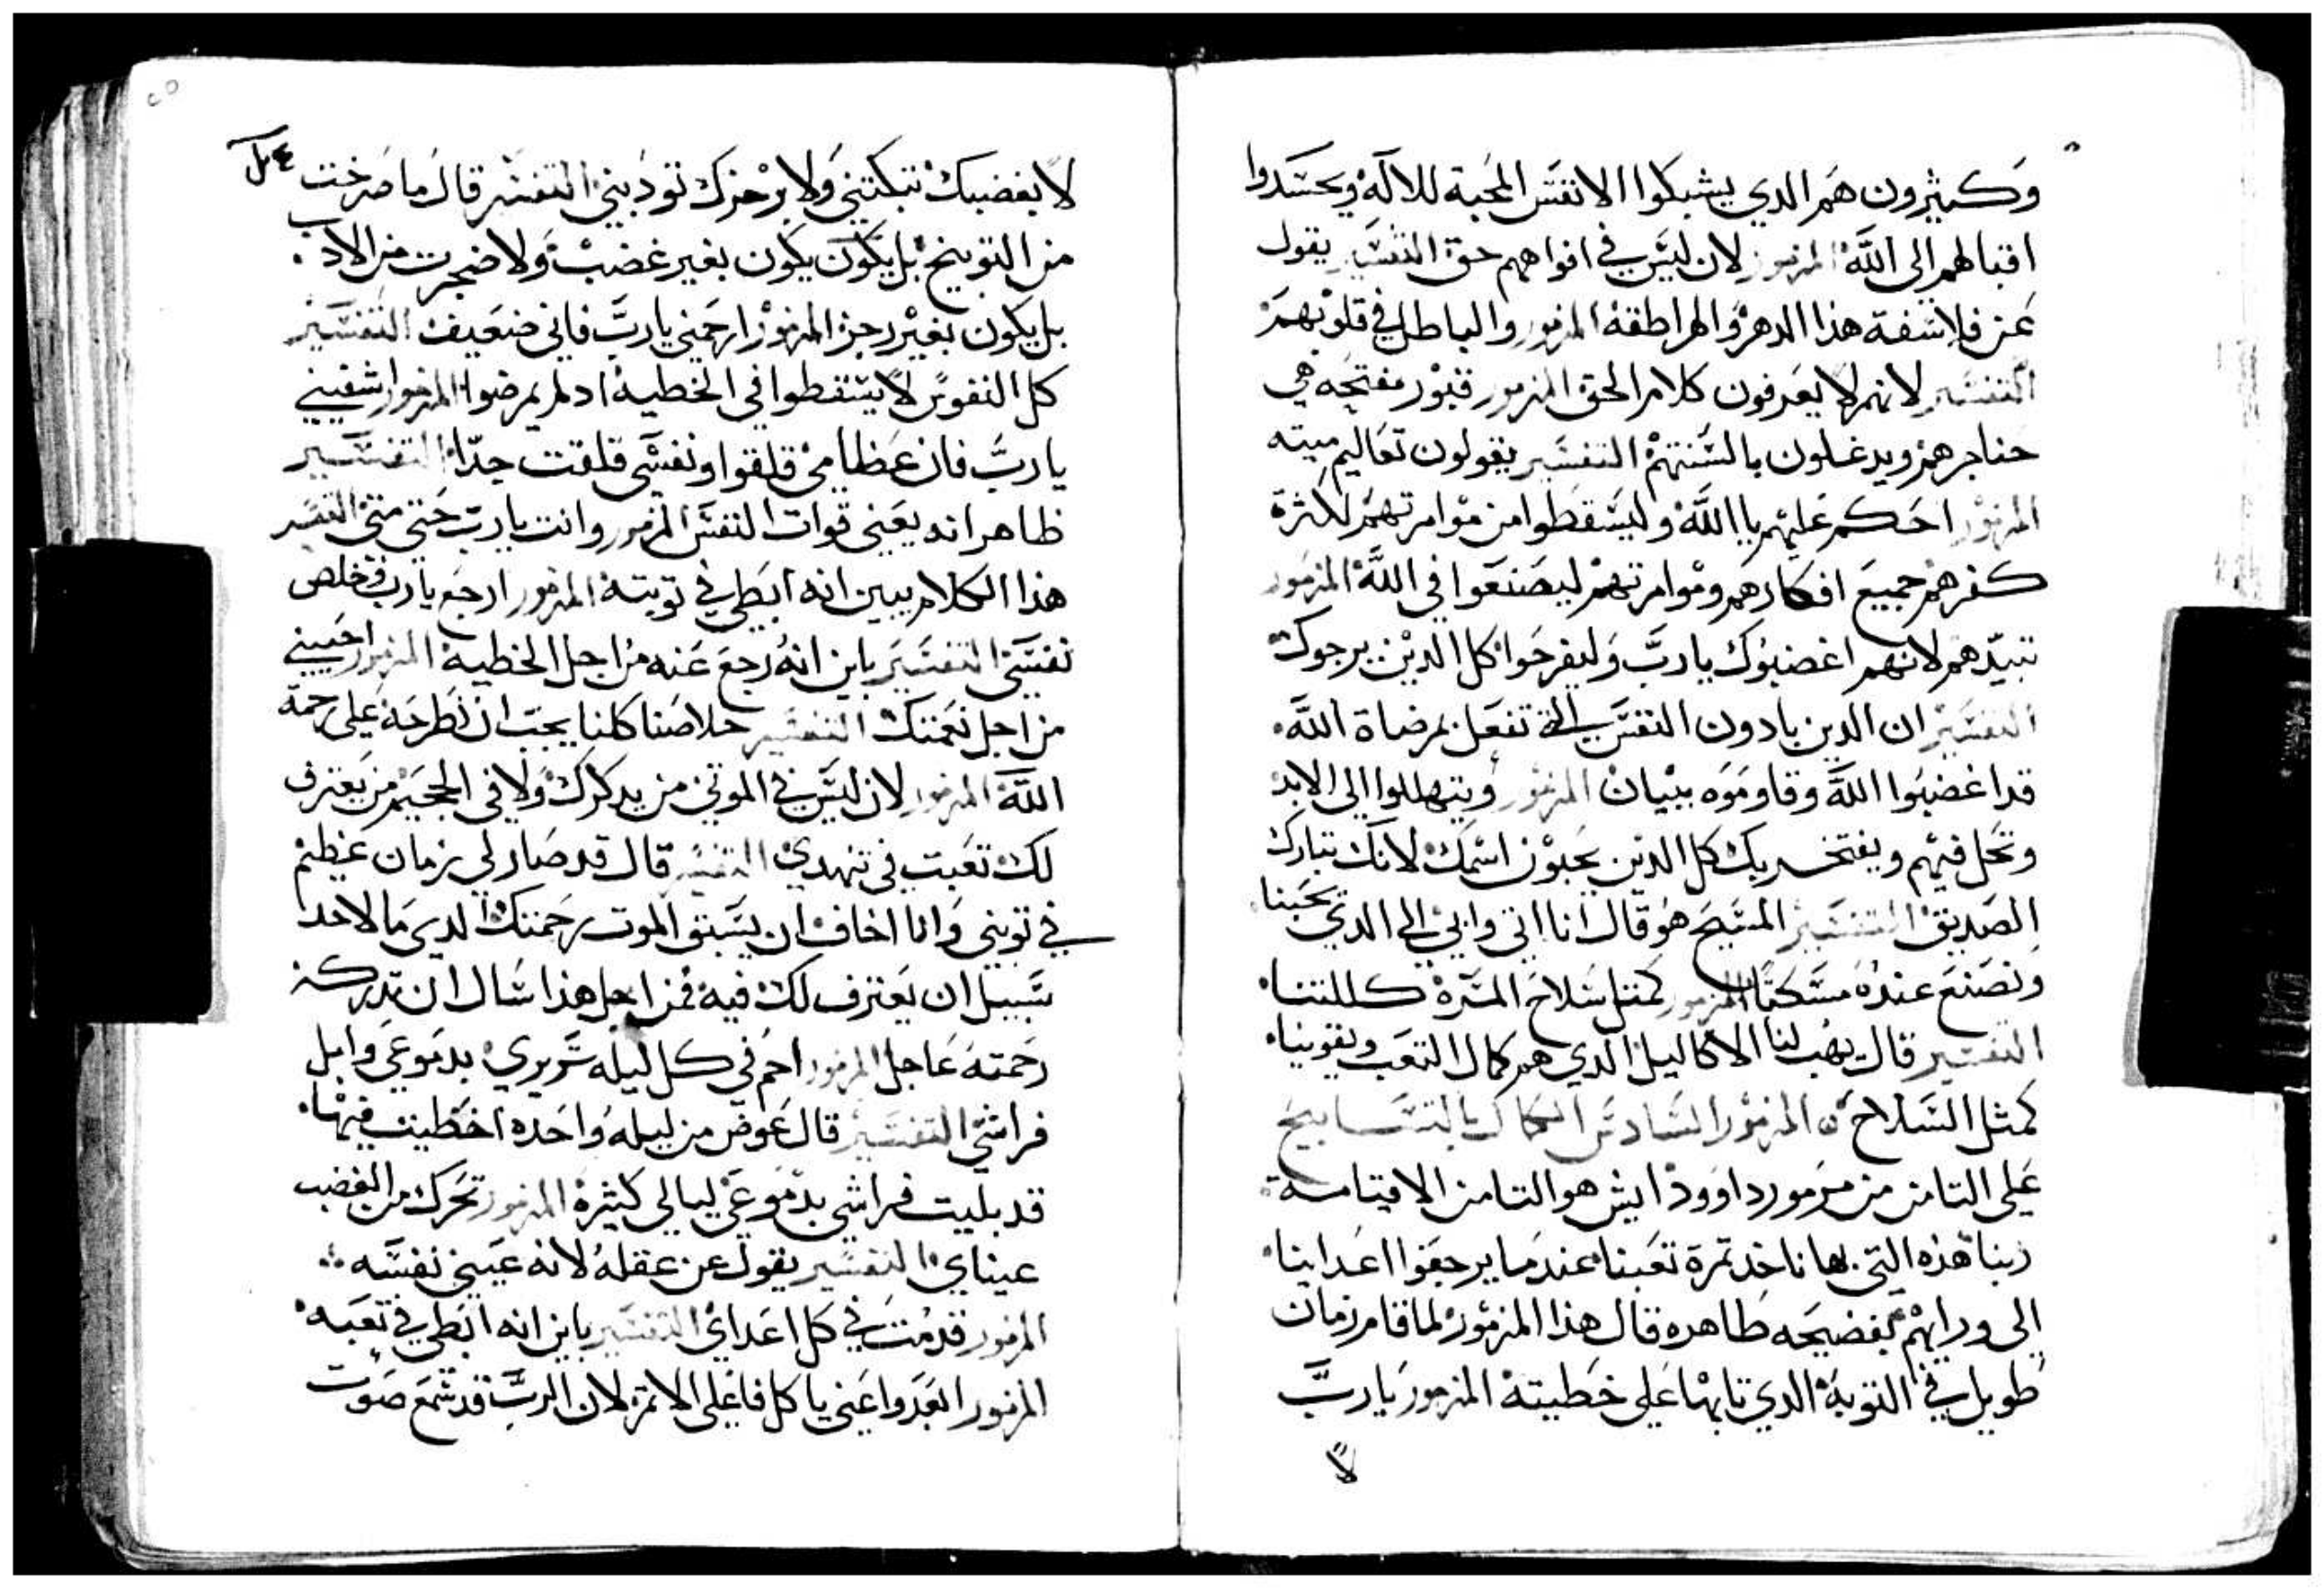 وكثيرون هم الدي يشبكوا الانفس المحبة للاله ويحسدوا
اقبالهم الى الله المزمور لان ليس في افواههم حق التفسير يقول
عن فلاسفة هذا الدهر والهراطقه المزمور والباطل في قلوبهم
التفسير لانهم لا يعرفون كلام الحق المزمور قبور مفتحه هي
حناجرهم ويدغلون بالسنتهم التفسير يقولون تعاليم ميته
المزمور احكم عليهم يا الله وليسقطوا من موامرتهم لكثرة
كفرهم جميع افكارهم وموامرتهم ليصنعوا في الله المزمور
تبدهم لانهم اغضبوك يا رب وليفرحوا كل الدين يرجوك
التفسير ان الدين يادون النفس التي تفعل بمرضاة الله
قد اغضبوا الله وقاوموه ببيان المزمور ويتهللوا الى الابد
وتحل فيهم ويفتخر بك كل الدين يحبون اسمك لانك تبارك
الصديق التفسير المسيح هو قال انا اتي وابي الى الدي يحبنا
ونصنع عنده مسكنا المزمور كمثل سلاح المسرة كللتنا
التفسير قال يهب لنا الاكاليل الدي هم كمال التعب ويقوينا
كمثل السلاح المزمور السادس الكمال بالتسابيح
على التامن من مزمور داوود ايش هو التامن الا قيامة
ربنا هذه التي بها ناخد تمرة تعبنا عندما يرجعوا اعداينا
الى ورايهم بفضيحه طاهره قال هذا المزمور لما قام زمان
طويل في التوبة الدي تابها على خطيته المزمور يا رب
لا
لا بغضبك تبكتني ولا برجزك تودبني التفسير قال ما صرخت
من التوبيخ بل يكون يكون بغير غضب ولا ضجرت من الادب
بل يكون بغير رجز المزمور ارحمني يا رب فاني ضعيف التفسير
كل النفوس لا يسقطوا في الخطيه اد لم يمرضوا المزمور اشفيني
يا رب فان عظامي قلقوا ونفسي قلقت جدا التفسير
ظاهر انه يعني قوات النفس المزمور وانت يا رب حتى متى التفسير
هذا الكلام يبين انه ابطي في توبته المزمور ارجع يا رب فتخلص
نفسي التفسير باين انه رجع عنه من اجل الخطيه المزمور احييني
من اجل نعمتك التفسير خلاصنا كلنا يجب ان نطرحه على رحمة
الله المزمور لان ليس في الموتى من يدكرك ولا في الجحيم من يعترف
لك تعبت في تنهدي التفسير قال قد صار لي زمان عظيم
في توبتي وانا اخاف ان يسبق الموت رحمتك الدي ما لاحد
سبيل ان يعترف لك فيه فمن اجل هذا سال ان تدركه
رحمته عاجل المزمور احم في كل ليله سريري بدموعي وابل
فراشي التفسير قال عوض من ليله واحده اخطيت فيها
قد بليت فراشي بدموعي ليالي كثيرة المزمور تحرك من الغضب
عيناي التفسير يقول عن عقله لانه عيني نفسه
المزمور قدمت في كل اعداي التفسير باين انه ابطي في تعبه
المزمور ابعدوا عني يا كل فاعلي الاتم لان الرب قد سمع صوت